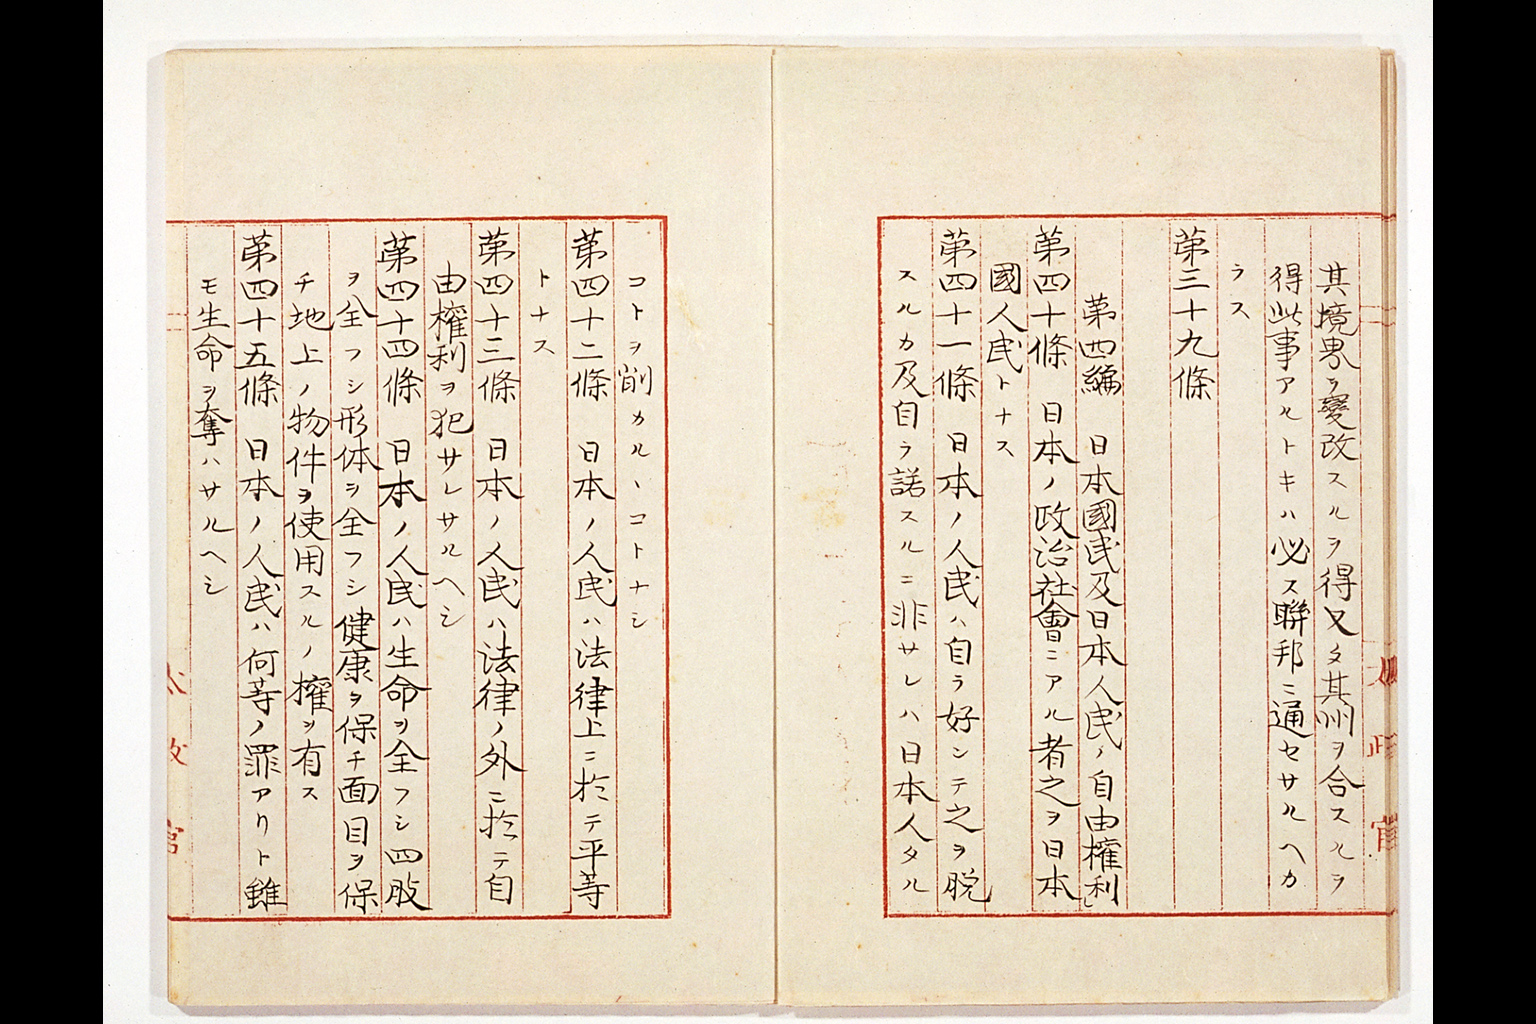 其境界ヲ變改スルヲ得又タ其州ヲ合スルヲ
得此事アルトキハ必ス聯邦ニ通セサルヘカ
ラス
第三十九條
第四編　日本國民及日本人民ノ自由權利
第四十條　日本ノ政治社會ニアル者之ヲ日本
國人民トナス
第四十一條　日本ノ人民ハ自ラ好ンテ之ヲ脱
スルカ及自ラ諾スルニ非サレハ日本人タル
コトヲ削カルヽコトナシ
第四十二條　日本ノ人民ハ法律上ニ於テ平等
トナス
第四十三條　日本ノ人民ハ法律ノ外ニ於テ自
由權利ヲ犯サレサルヘシ
第四十四條　日本ノ人民ハ生命ヲ全フシ四肢
ヲ全フシ形体ヲ全フシ健康ヲ保チ面目ヲ保
チ地上ノ物件ヲ使用スルノ權ヲ有ス
第四十五條　日本ノ人民ハ何等ノ罪アリト雖
モ生命ヲ奪ハサルヘシ